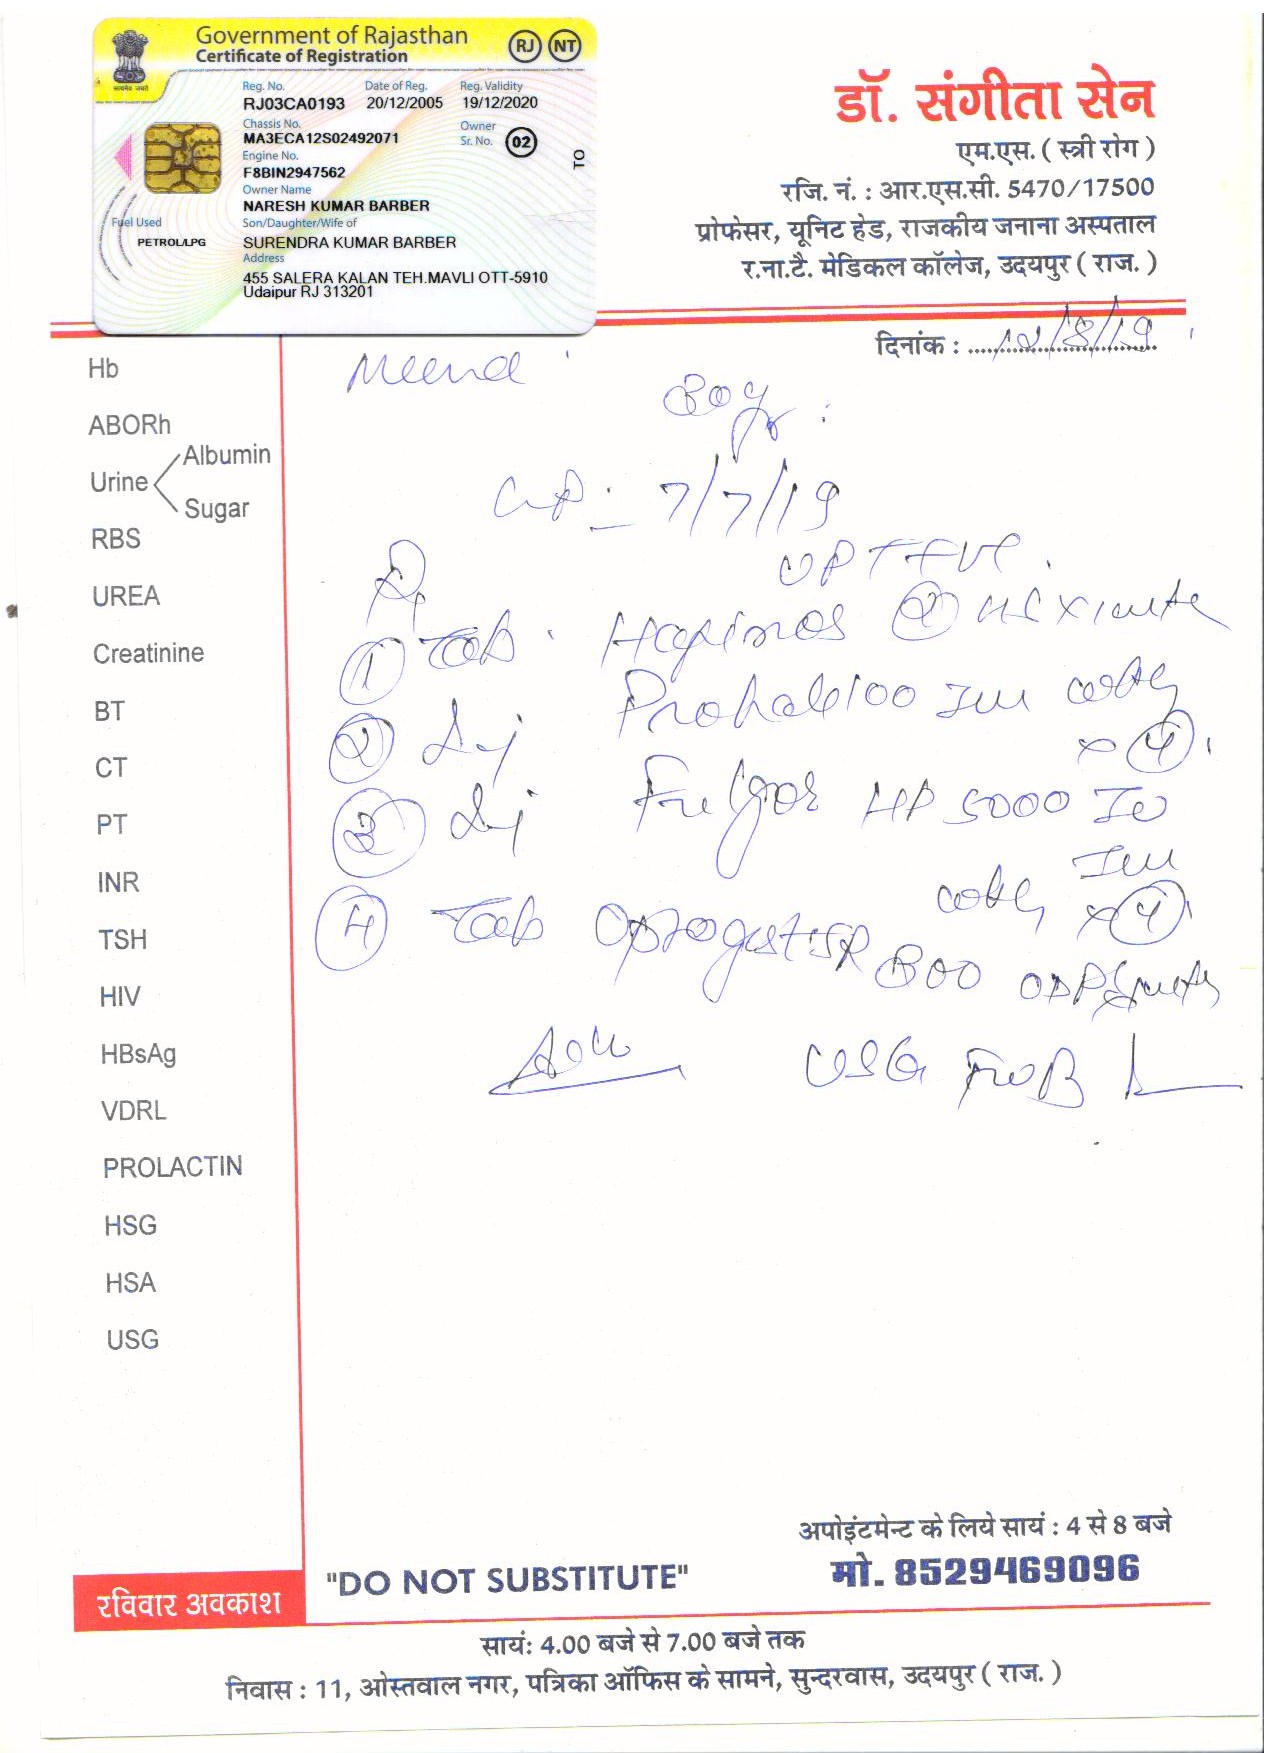 Government of Rajasthan
Certificate of Registration
RJ NT
Reg. No. Date of Reg. Reg. Validity
RJ03CA0193 20/12/2005 19/12/2020
Chassis No. Owner
MA3ECA12S02492071 Sr. No. 02
TO
Engine No.
F8BIN2947562
Owner Name
NARESH KUMAR BARBER
Fuel Used Son/Daughter/Wife of
PETROL/LPG SURENDRA KUMAR BARBER
Address
455 SALERA KALAN TEH.MAVLI OTT-5910
Udaipur RJ 313201
डॉ. संगीता सेन
एम.एस. ( स्त्री रोग )
रजि. नं. : आर.एस.सी. 5470/17500
प्रोफेसर, यूनिट हेड, राजकीय जनाना अस्पताल
र.ना.टै. मेडिकल कॉलेज, उदयपुर ( राज. )
दिनांक : 12/8/19
Hb
ABORh
Urine Albumin
Sugar
RBS
UREA
Creatinine
BT
CT
PT
INR
TSH
HIV
HBsAg
VDRL
PROLACTIN
HSG
HSA
USG
Meena
30 yr
7/7/19
UPT +ve
1 Tab.
2 Inj 100 IM
x 4
3 Inj Fulgor HP 5000 IU
IM
x 4
4 Tab 300
USG
अपोइंटमेन्ट के लिये सायं : 4 से 8 बजे
"DO NOT SUBSTITUTE" मो. 8529469096
रविवार अवकाश
सायं: 4.00 बजे से 7.00 बजे तक
निवास : 11, ओस्तवाल नगर, पत्रिका ऑफिस के सामने, सुन्दरवास, उदयपुर ( राज. )